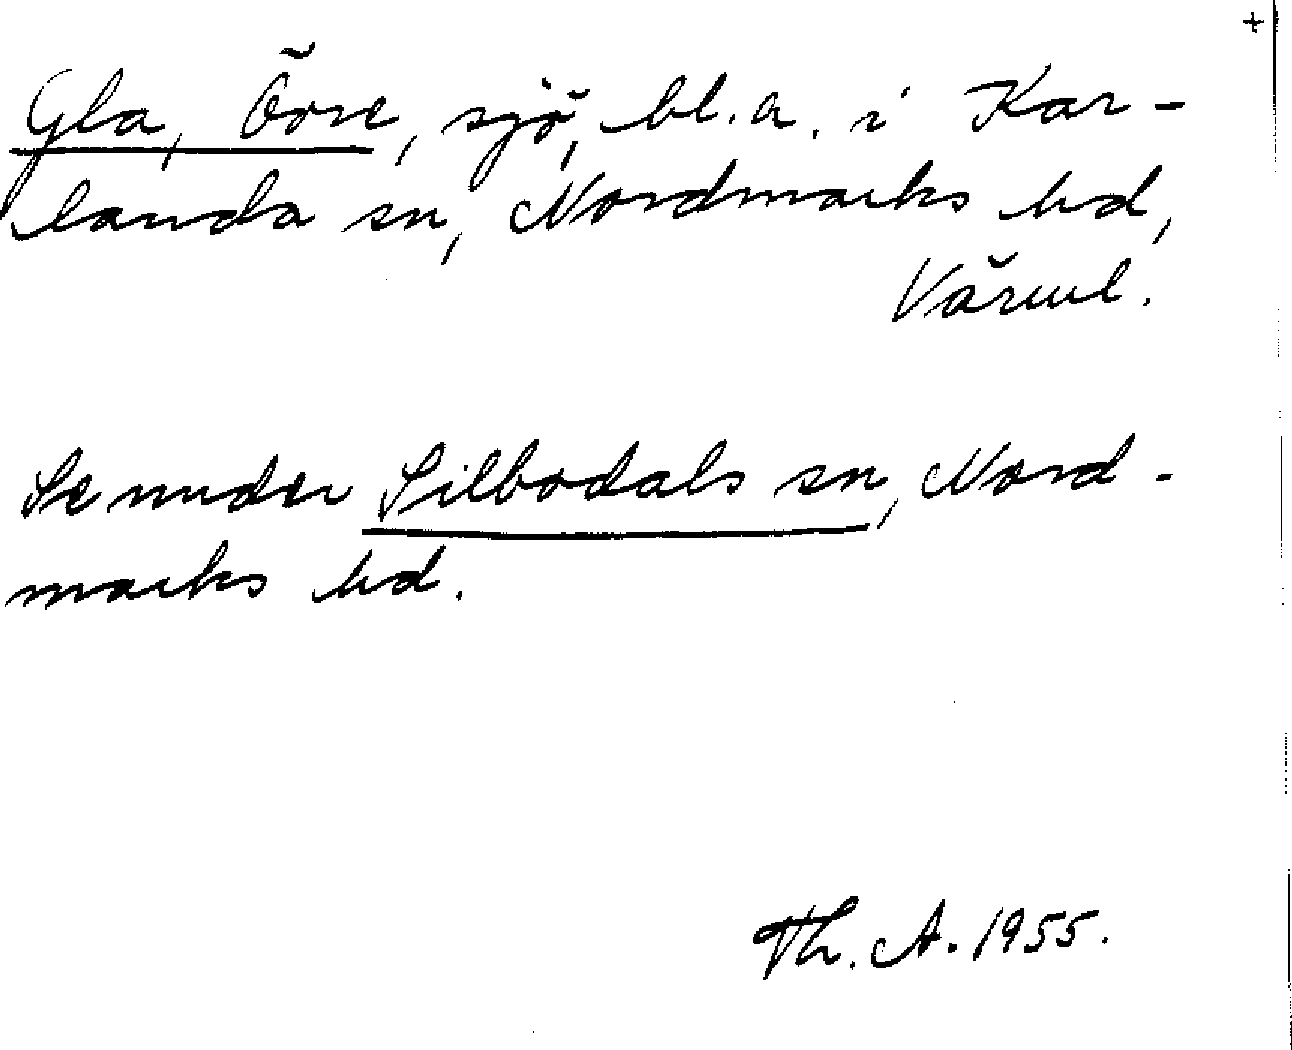 +
Gla, Övre, sjö, bl.a. i Kar-
landa sn, Nordmarks hd,
Värml.
Se under Silbodals sn, Nord-
marks hd.
Th. A. 1955.